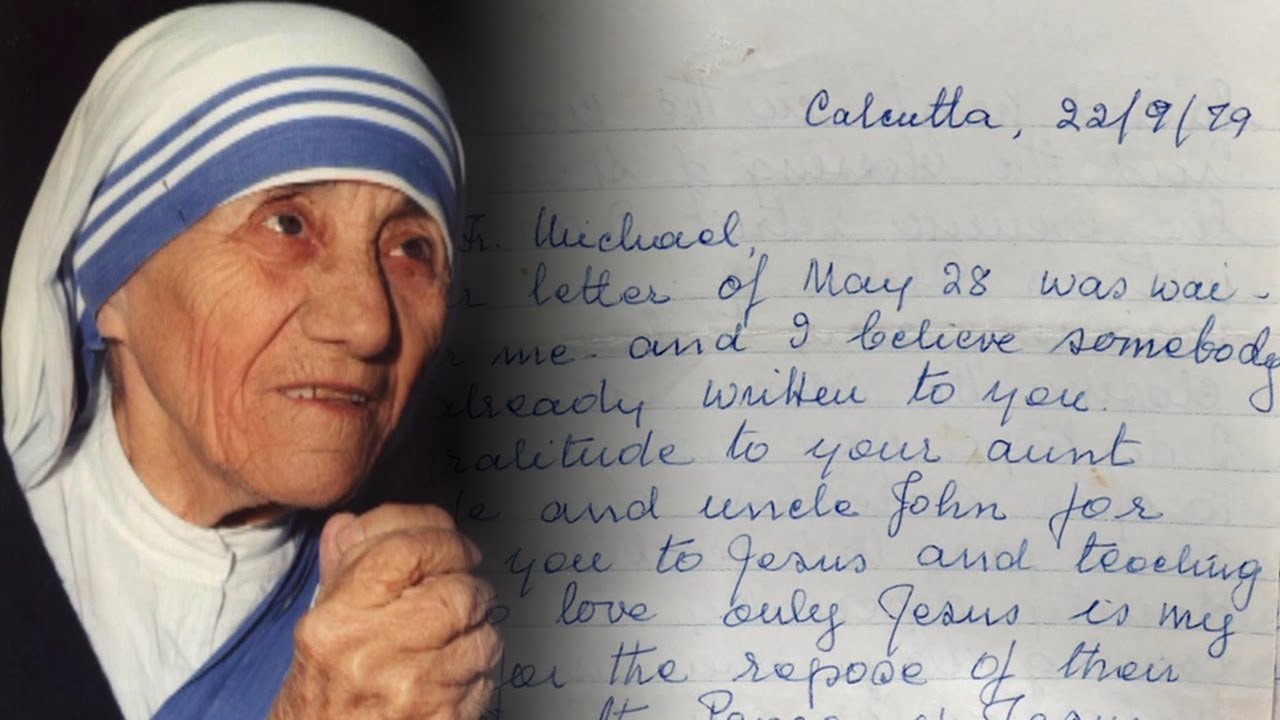 Calcutta, 22/9/79
Fr. Michael,
letter of May 28 was wai-
me - and I believe somebody
already written to you.
gratitude to your aunt
and uncle John for
you to Jesus and teaching
love only Jesus is my
for the repose of their
Jesus